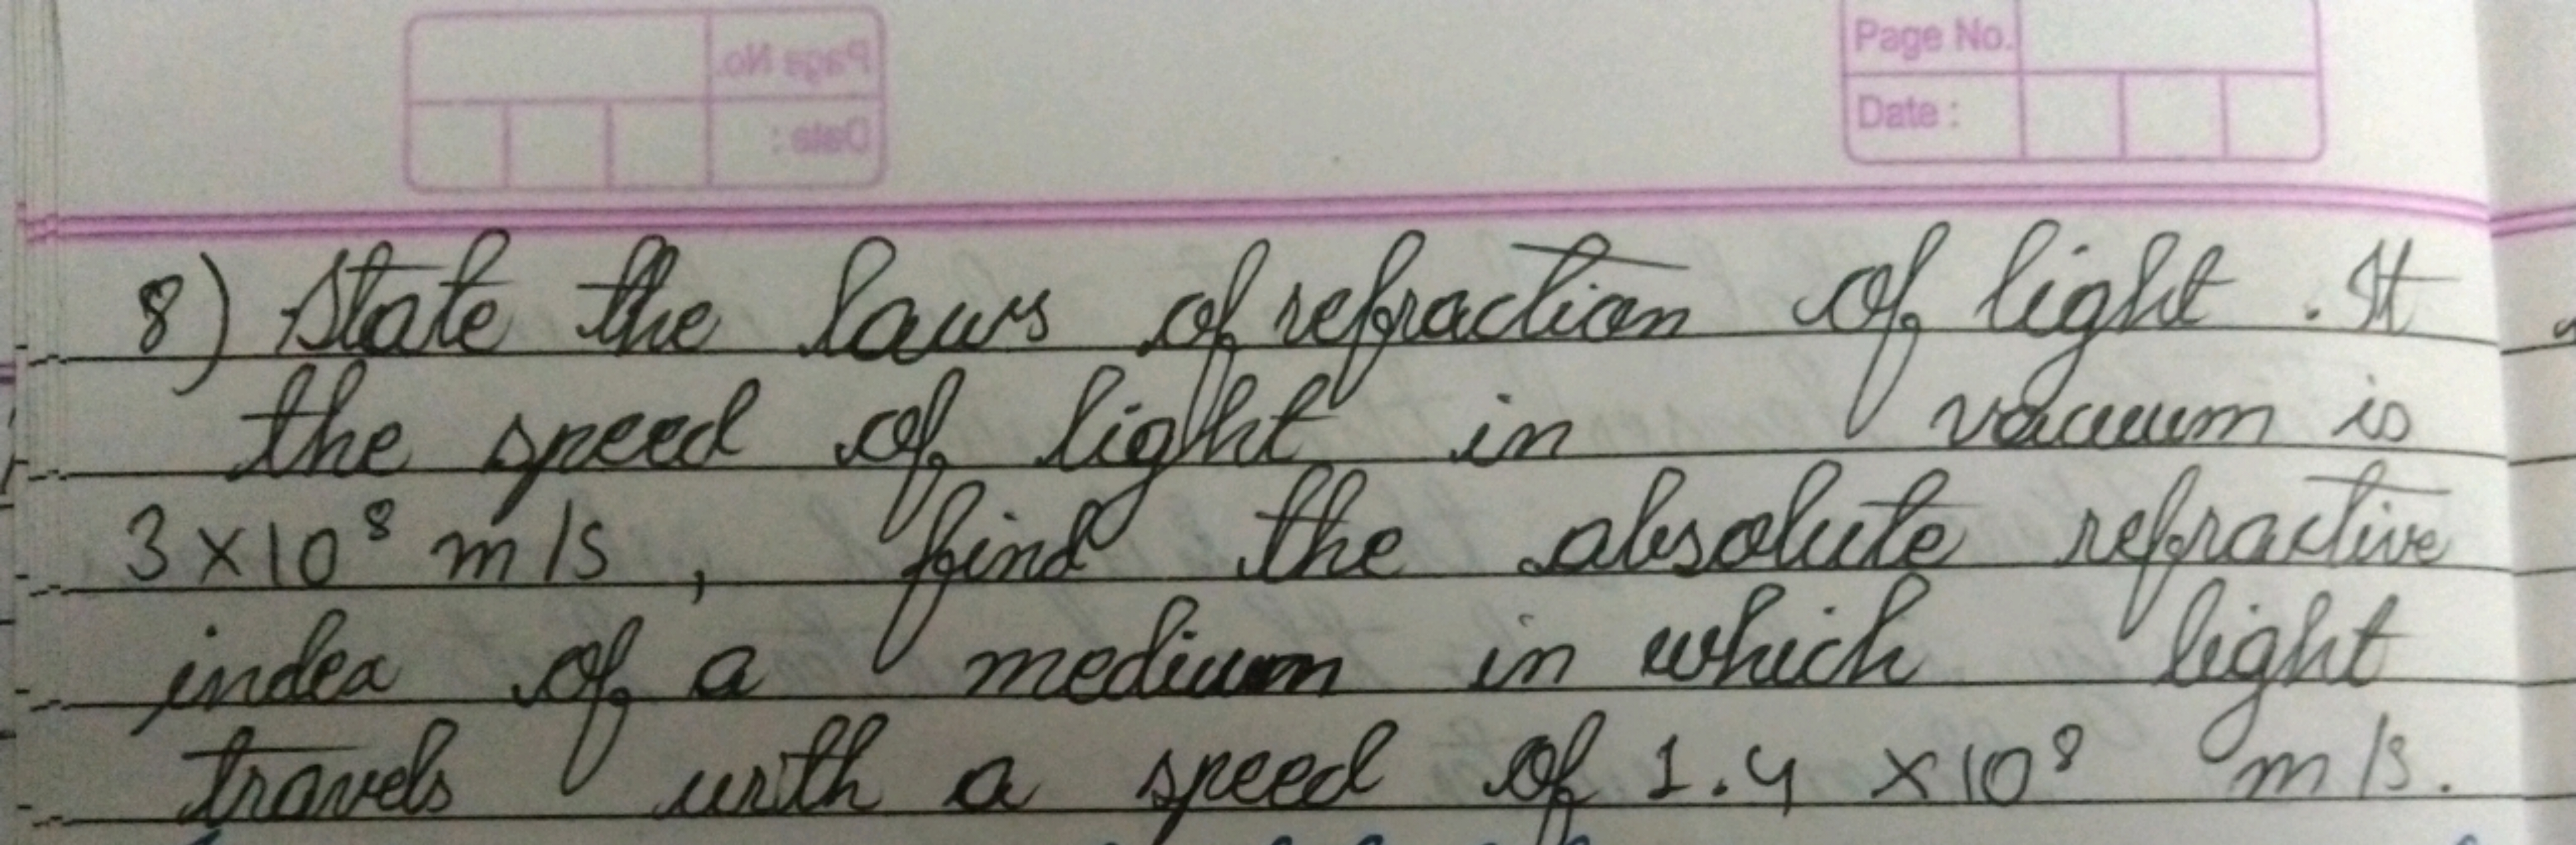 Page No.
Date :
Page No.
Date :
8) State the laws of refraction of light. It
the speed of light in vacuum is
3×10⁸ m/s, find the absolute refractive
index of a medium in which light
travels with a speed of 1.4 ×10⁸ m/s.